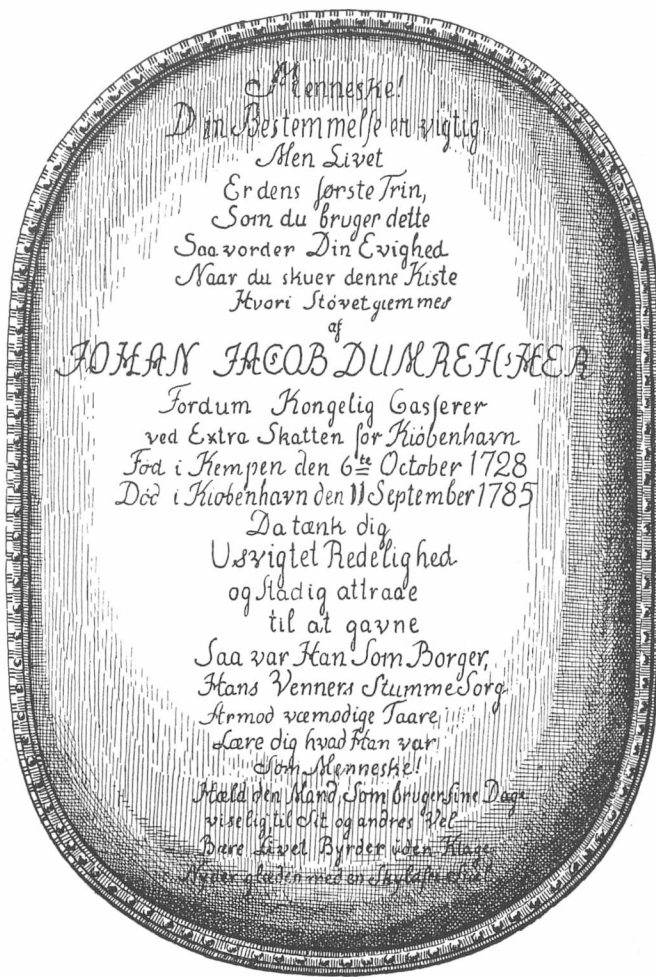 Menneske!
Din Bestemmelse er vigtig
Men Livet
Er dens første Trin,
Som du bruger dette
Saa vorder Din Evighed
Naar du skuer denne Kiste
Hvori Stóvet giemmes
af
JOHAN JACOB DUMREICHER
Fordum Kongelig Casserer
ved Extra Skatten for Kióbenhavn
Fód i Kempen den 6te October 1728
Dód i Kióbenhavn den 11 September 1785
Da tænk dig
Usvigtet Redelighed
og stadig attraae
til at gavne
Saa var Han Som Borger,
Hans Venners Stumme Sorg
Armod væmodige Taare,
Lære dig hvad Han var
Som Menneske!
Hæld den Mand, Som bruger Sine Dage
viselig, til Sit og andres Vel
Bære Livet Byrder uden Klage,
Nyder glæden med en